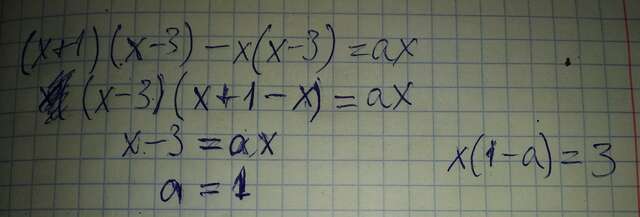 (x+1)(x-3)-x(x-3)=ax
(x-3)(x+1-x)=ax
x-3=ax
x(1-a)=3
a=1